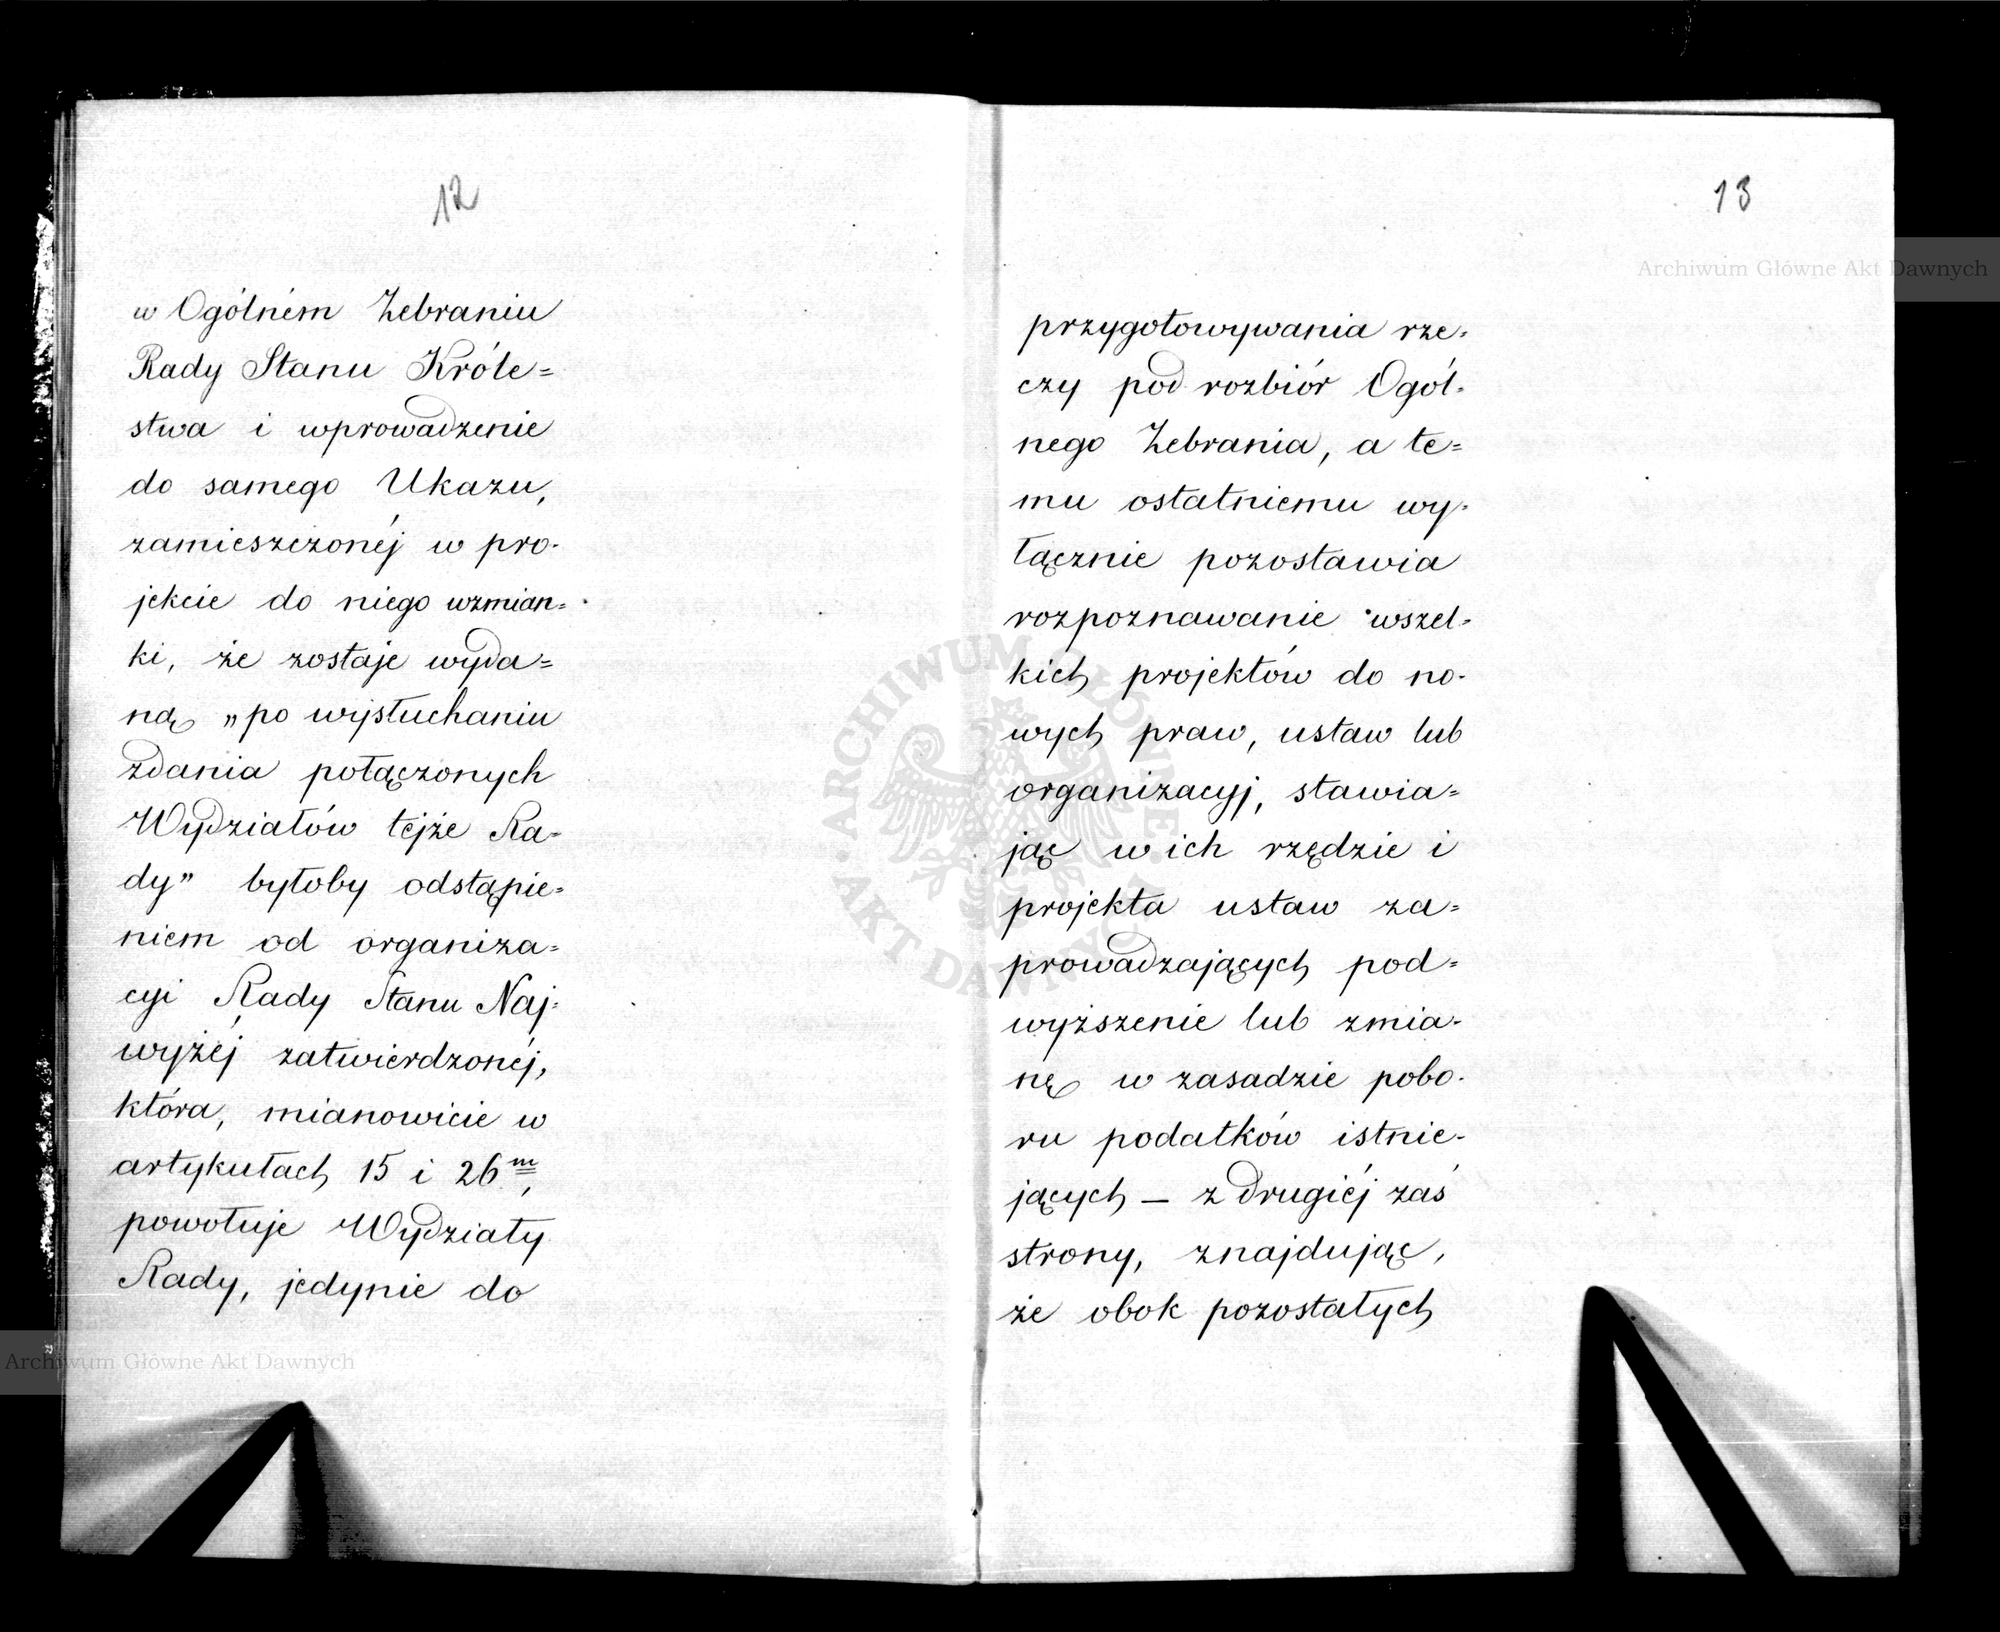 12
w Ogólném Zebraniu
Rady Stanu Króle=
stwa i wprowadzenie
do samego Ukazu,
zamieszczonéj w pro-
jekcie do niego wzmian=
ki, że zostaje wyda=
ną „po wysłuchaniu
zdania połączonych
Wydziałów tejże Ra-
dy" byłoby odstąpie=
niem od organiza=
cyi Rady Stanu Naj=
wyżéj zatwierdzonéj,
która, mianowicie w
artykułach 15 i 26m,
powołuje Wydziały
Rady, jedynie do
13
przygotowywania rze-
czy pod rozbiór Ogól-
nego Zebrania, a te=
mu ostatniemu wy-
łącznie pozostawia
rozpoznawanie wszel-
kich projektów do no-
wych praw, ustaw lub
organizacyj, stawia=
jąc w ich rzędzie i
projekta ustaw za=
prowadzających pod=
wyższenie lub zmia-
nę w zasadzie pobo-
ru podatków istnie-
jących — z drugiéj zaś
strony, znajdując,
że obok pozostałych
Archiwum Główne Akt Dawnych
Archiwum Główne Akt Dawnych
ARCHIWUM GŁÓWNE AKT DAWNYCH